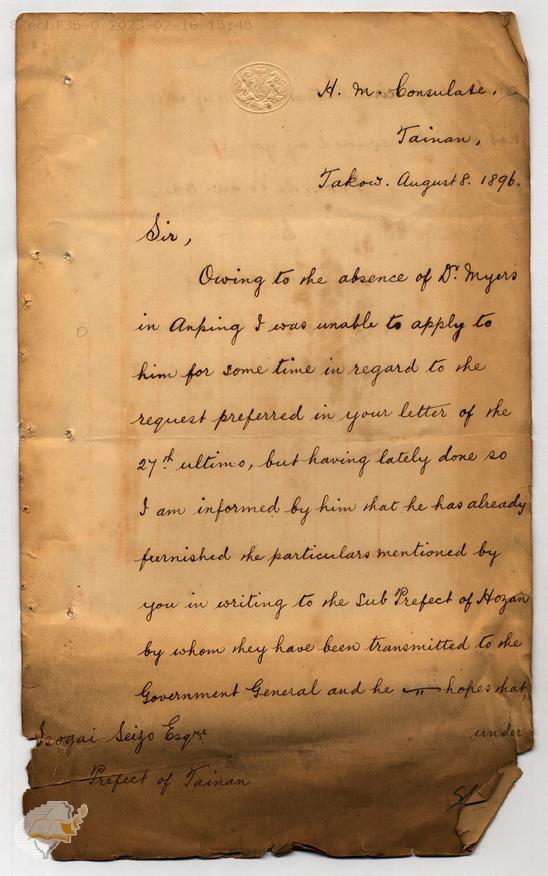 H. M. Consulate,
Tainan,
Takow. August 8. 1896.
Sir,
Owing to the absence of Dr. Myers
in Anping I was unable to apply to
him for some time in regard to the
request preferred in your letter of the
27th ultimo, but having lately done so
I am informed by him that he has already
furnished the particulars mentioned by
you in writing to the Sub Prefect of Hozan
by whom they have been transmitted to the
Government General and he hopes that,
under
Isogai Seizo Esqre
Prefect of Tainan